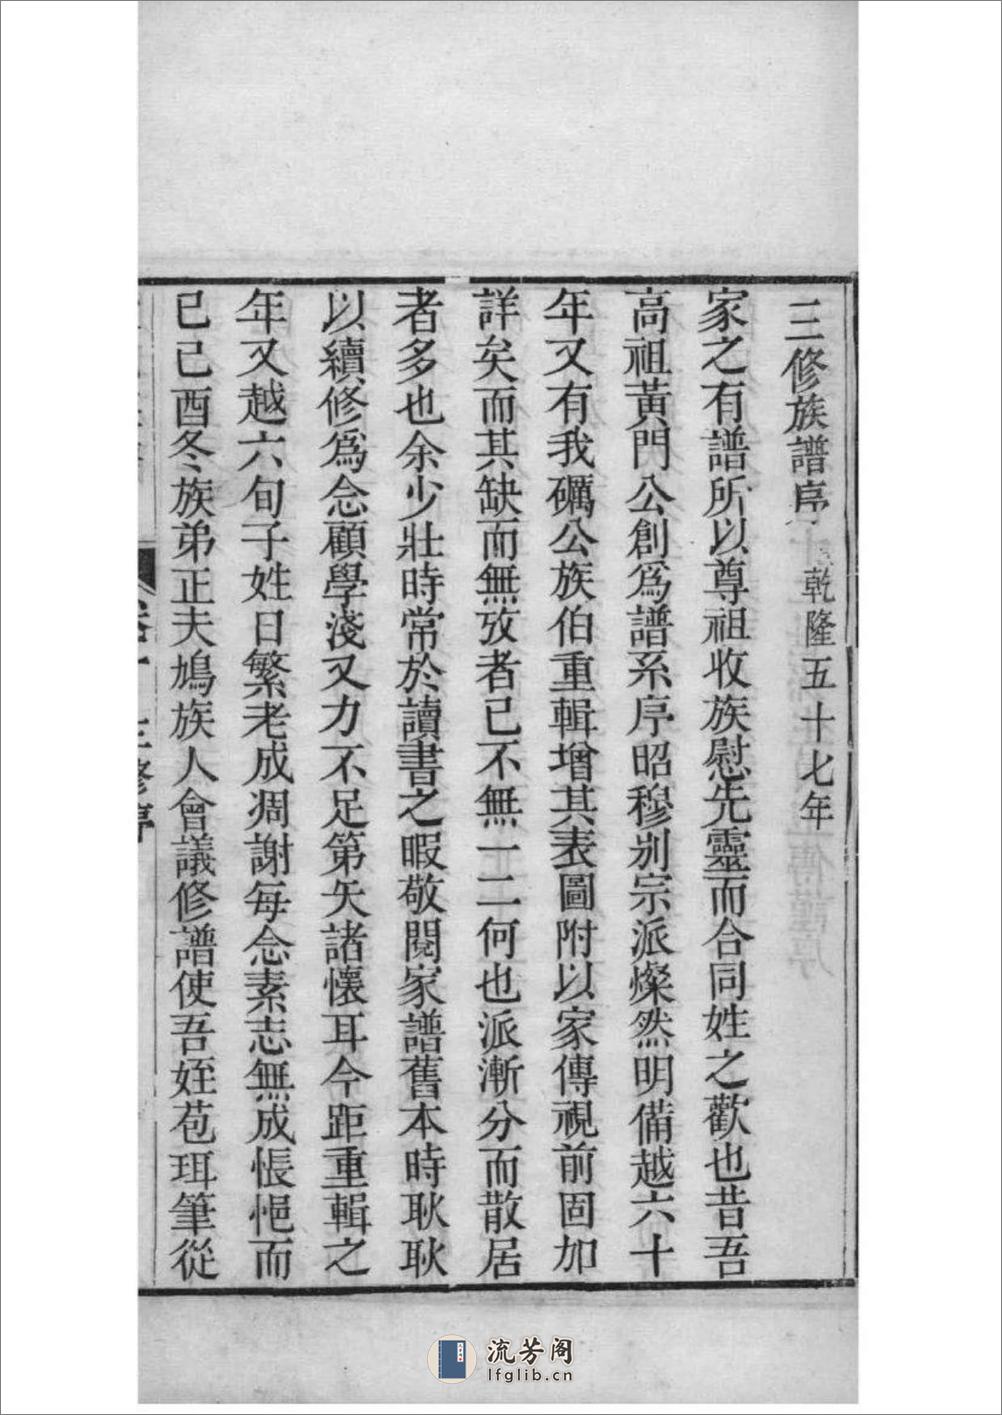 三修族譜序 乾隆五十七年
家之有譜所以尊祖收族慰先靈而合同姓之歡也昔吾
高祖黃門公創爲譜系序昭穆別宗派燦然明備越六十
年又有我礪公族伯重輯增其表圖附以家傳視前固加
詳矣而其缺而無攷者已不無一二何也派漸分而散居
者多也余少壯時常於讀書之暇敬閱家譜舊本時耿耿
以續修爲念顧學淺又力不足第矢諸懷耳今距重輯之
年又越六旬子姓日繁老成凋謝每念素志無成悵悒而
已己酉冬族弟正夫鳩族人會議修譜使吾姪苞珥筆從
三修序
流芳阁
lfglib.cn